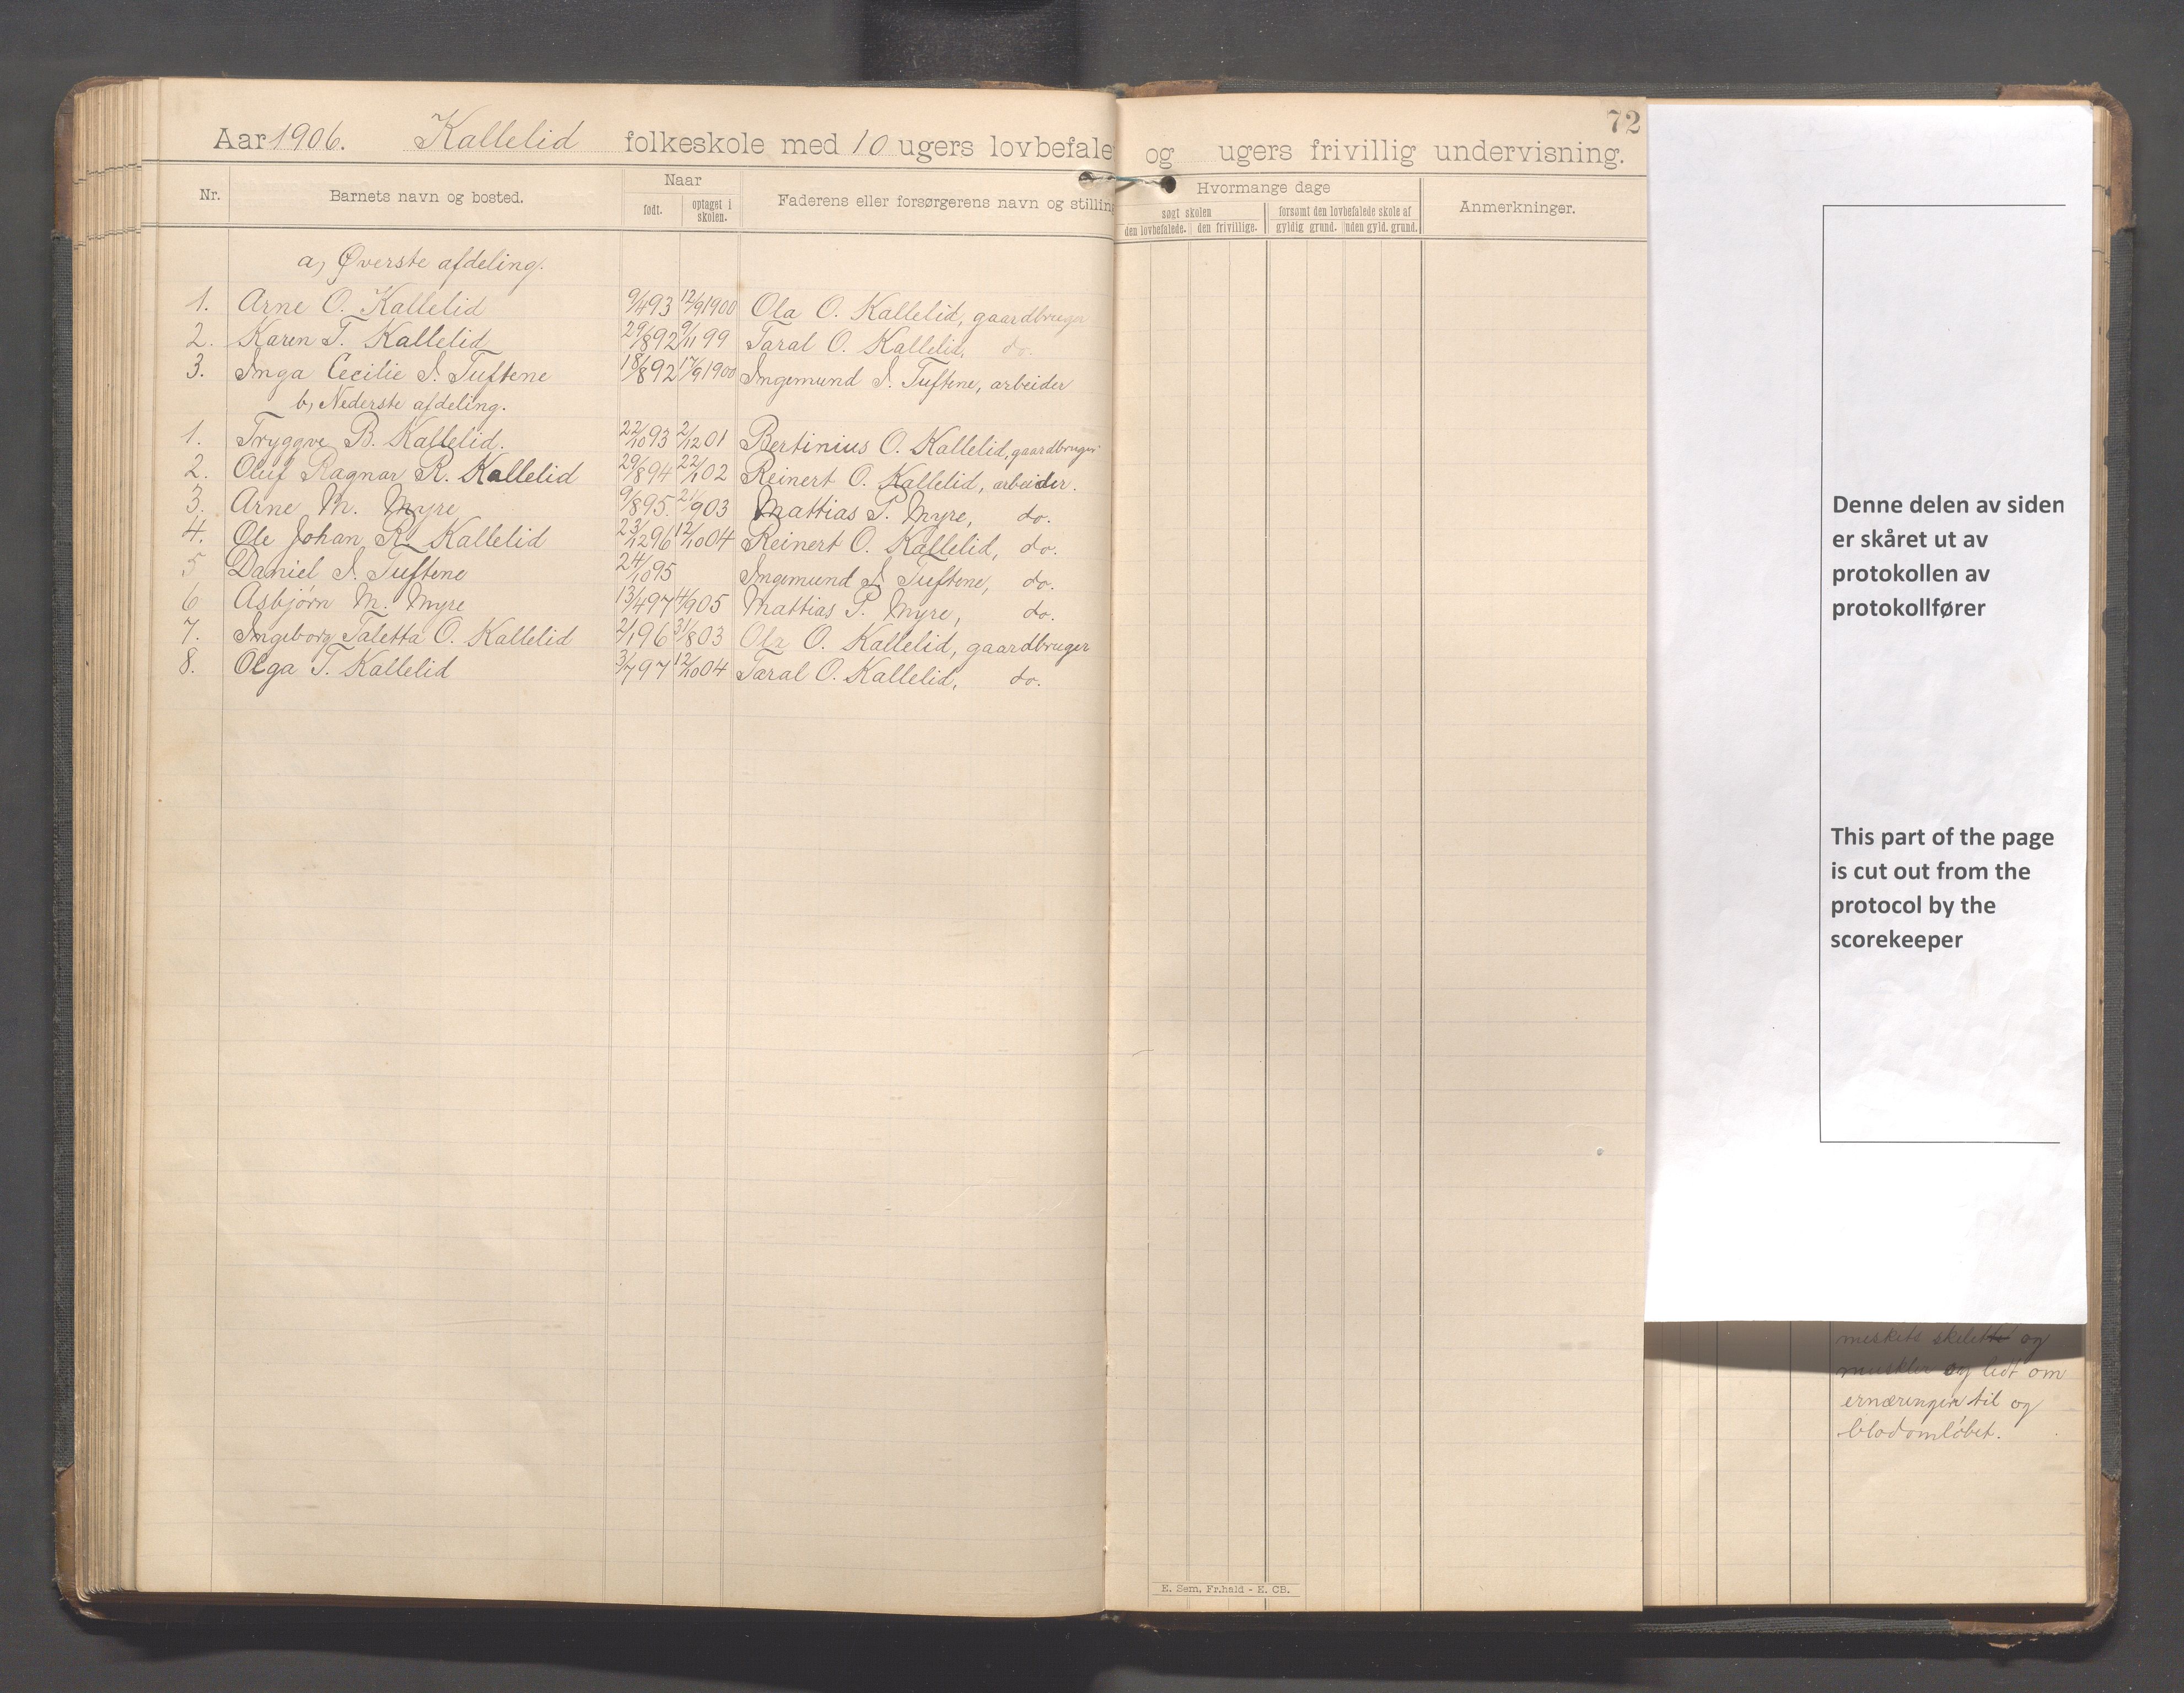 72
Aar 1906. Kallelid folkeskole med 10 ugers lovbefale og ugers frivillig undervisning.
Nr. Barnets navn og bosted. Naar født. optaget i skolen. Faderens eller forsørgerens navn og stilling Hvormange dage søgt skolen den lovbefalede. den frivillige. forsømt den lovbefalede skole af gyldig grund. uden gyld. grund. Anmerkninger.
a, Øverste afdeling.
1. Arne O. Kallelid 9/4 93 12/9 1900 Ola O. Kallelid, gaardbruger
2. Karen T. Kallelid 29/8 92 9/11 99 Taral O. Kallelid, do.
3. Inga Cecilie I. Tuftene 18/8 92 17/9 1900 Ingemund I. Tuftene, arbeider
b, Nederste afdeling.
1. Tryggve B. Kallelid. 22/10 93 2/12 01 Bertinius O. Kallelid, gaardbruger
2. Oluf Ragnar R. Kallelid 29/8 94 22/1 02 Reinert O. Kallelid, arbeider.
3. Arne M. Myre 9/8 95. 21/9 03 Mattias P. Myre, do.
4. Ole Johan R. Kallelid 23/12 96 12/10 04 Reinert O. Kallelid, do.
5 Daniel I. Tuftene 24/10 95 Ingemund I. Tuftene, do.
6 Asbjørn M. Myre 13/4 97 4/9 05 Mattias P. Myre, do.
7. Ingeborg Taletta O. Kallelid 2/1 96 31/8 03 Ola O. Kallelid, gaardbruger
8. Olga T. Kallelid 3/7 97 12/10 04 Taral O. Kallelid, do.
E. Sem, Fr.hald - E. CB.
Denne delen av siden
er skåret ut av
protokollen av
protokollfører
This part of the page
is cut out from the
protocol by the
scorekeeper
meskets skelet og
muskler og lidt om
ernæringen til og
blodomløbet.